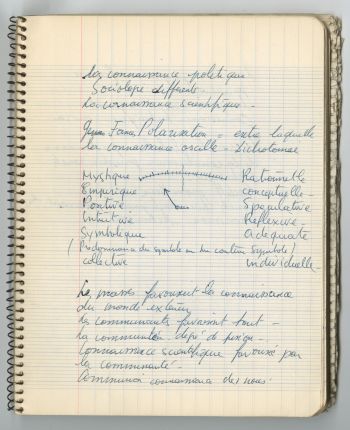 La connaissance politique
Sociologie différente.
La connaissance scientifique -
Formes Polarisation = entre laquelle
la connaissance oscille - Dichotomie
Mystique Rationnelle
Empirique conceptuelle -
Positive Spéculative
Intuitive Réflexive -
Symbolique adéquate
(Prédominance du symbole ou du contenu symbolisé)
collective individuelle -
Les masses favorisent la connaissance
du monde extérieur
les communautés favorisent tout -
La communauté
Connaissance scientifique favorisé par
la communauté -
Communion connaissance de nous.